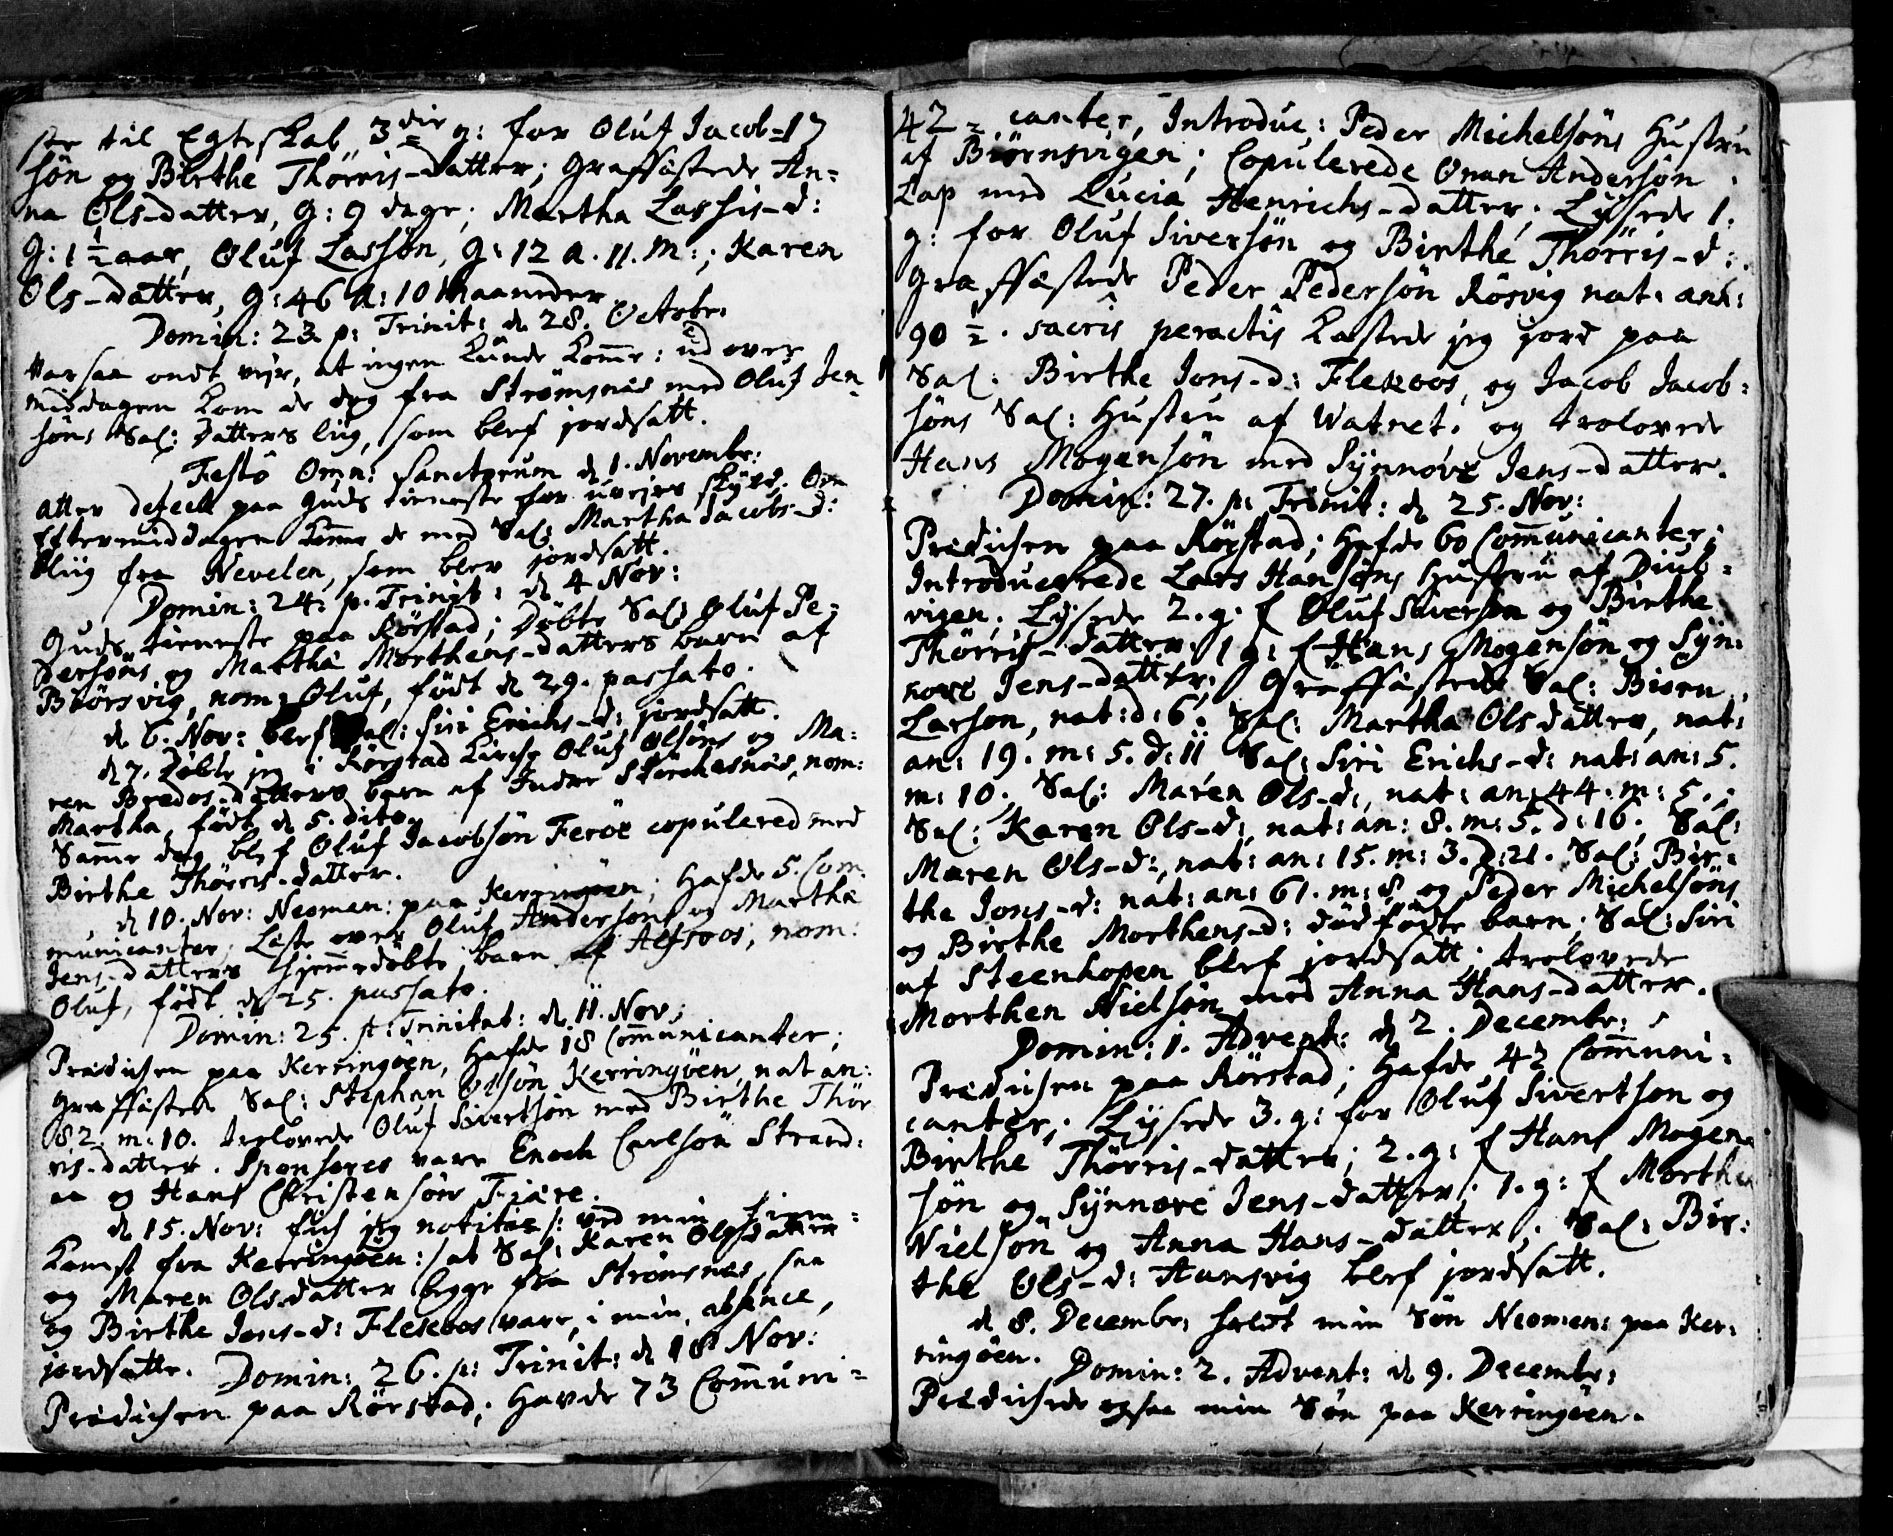 ste til Egteskab 3die g: for Oluf Jacob- 17
søn og Birthe Thørris-datter; Graffæstede An-
na Ols-datter, g: 9 dage; Martha Lassis-d:
g: 1 1/2 aar, Oluf Lassøn, g: 12 a. 11. m:; Karen
Ols-datter, g: 46 a: 10 Maaneder
Domin: 23 p: Trinit: d. 28. Octobr:
Var saa ondt vejr, at ingen kunde komme: ud over
middagen kom de dog fra Strømsnæs med Oluf Jen-
søns Sal: datters liig, som blef jordsatt.
Festo Omn: Sanctorum d. 1. Novembr:
atter defect paa Guds tieneste for uvejrs skyld. Om
Eftermiddagen komme de med Sal: Martha Jacobs-d:
Liig fra Nevelen, som blev jordsatt.
Domin: 24. p. Trinit: d. 4 Nov:
Guds tieneste paa Rørstad; Døbte Sal: Oluf Pe-
dersøns og Martha Morthens-datters barn af
Børsvig, nom: Oluf, født d. 29. passato.
d. 6. Nov: blef Sal: Siri Erichs-d: jordsatt.
d. 7. Døbte jeg i Rørstad Kirche Oluf Olsøns og Ma-
ren Bredes-datters barn af Indre Storchesnæs, nom:
Martha, født d. 5. dito.
Samme dag blef Oluf Jacobsøn Feröe copulered med
Birthe Thørris-datter.
d. 10. Nov: Neomen: paa Kerringøen; Hafde 5. Com-
municanter, Læste over Oluf Andersøns og Martha
Jens-datters hjemmedøbte barn af Alfsoos, nom:
Oluf, født d. 25. passato.
Domin: 25. p: Trinitat: d. 11. Nov:
Prædichen paa Kerringøen, Hafde 18 Communicanter;
Graffæstede Sal: Stephan Olsøn Kerringøen, nat an:
82. m: 10. trolovede Oluf Sivertsøn med Birthe Thør-
ris-datter. Sponsores vare Enoch Carlsøn Strand-
aa og Hans Christensøn Fjære.
d. 15. Nov: fich jeg notitie /: ved min hiem-
komst fra Kerringøen :/ at Sal: Karen Olsdatter
og Maren Olsdatter begge fra Strømsnæs, saa
og Birthe Jons-d: Flekoos vare, i min absence,
jordsatte. Domin: 26. p: Trinit: d. 18 Nov:
Prædichen paa Rørstad; Havde 73 Communi-
42 - canter, Introduc: Peder Michelsøns Hustru
af Biørnsvigen; Copulerede Onun Andersøn
Lap med Lucia Henrichs-datter; Lysede 1.
g: for Oluf Siversøn og Birthe Thørris-d:
Graffæstede Peder Pedersøn Røsvig nat: an:
90 1/2. sacris peractis kastede jeg jord paa
Sal: Birthe Jons-d: Flekoos, og Jacob Jacob-
søns Sal: Hustru af Watnet. og trolovede
Hans Mogensøn med Synnove Jens-datter.
Domin: 27. p: Trinit: d. 25. Nov:
Prædichen paa Rørstad; Hafde 60 Communicanter;
Introducerede Lars Hansøns Hustru af Diub-
vigen; Lysede 2. g: f Oluf Siversøn og Birthe
Thørris-datter, 1 g: f Hans Mogensøn og Syn-
nove Jens-datter; Graffæstede Sal: Biørn
Larsøn, nat: d: 6. Sal: Martha Olsdatter, nat:
an: 19. m: 5. d: 11 Sal: Siri Erichs-d: nat: an: 5.
m: 10. Sal: Maren Ols-d:, nat: an: 44. m: 5.;
Sal: Karen Ols-d:, nat: an: 8. m: 5. d: 16; Sal:
Maren Ols-d:, nat: an: 15. m: 3. d: 21. Sal: Bir-
the Jons-d: nat: an: 61. m: 8 og Peder Michelsøns
og Birthe Morthens-d: dødfødte barn; Sal: Siri
af Steenhopen blef jordsatt; trolovede
Morthen Nielsøn med Anna Hans-datter.
Domin: 1. Advent: d. 2. Decembr:
Prædichen paa Rørstad; Hafde 42 Communi-
canter; Lysede 3. g: for Oluf Sivertsøn og
Birthe Thørris-datter; 2. g: f Hans Mogen-
søn og Synnove Jens-datter; 1. g: f Morthen
Nielsøn og Anna Hans-datter; Sal: Bir-
the Ols-d: Aansvig blef jordsatt.
d. 8. Decembr: holdt min Søn Neomen: paa Ker-
ringøen. Domin: 2. Advent: d. 9. Decembr:
Prædichede ogsaa min Søn paa Kerringøen.